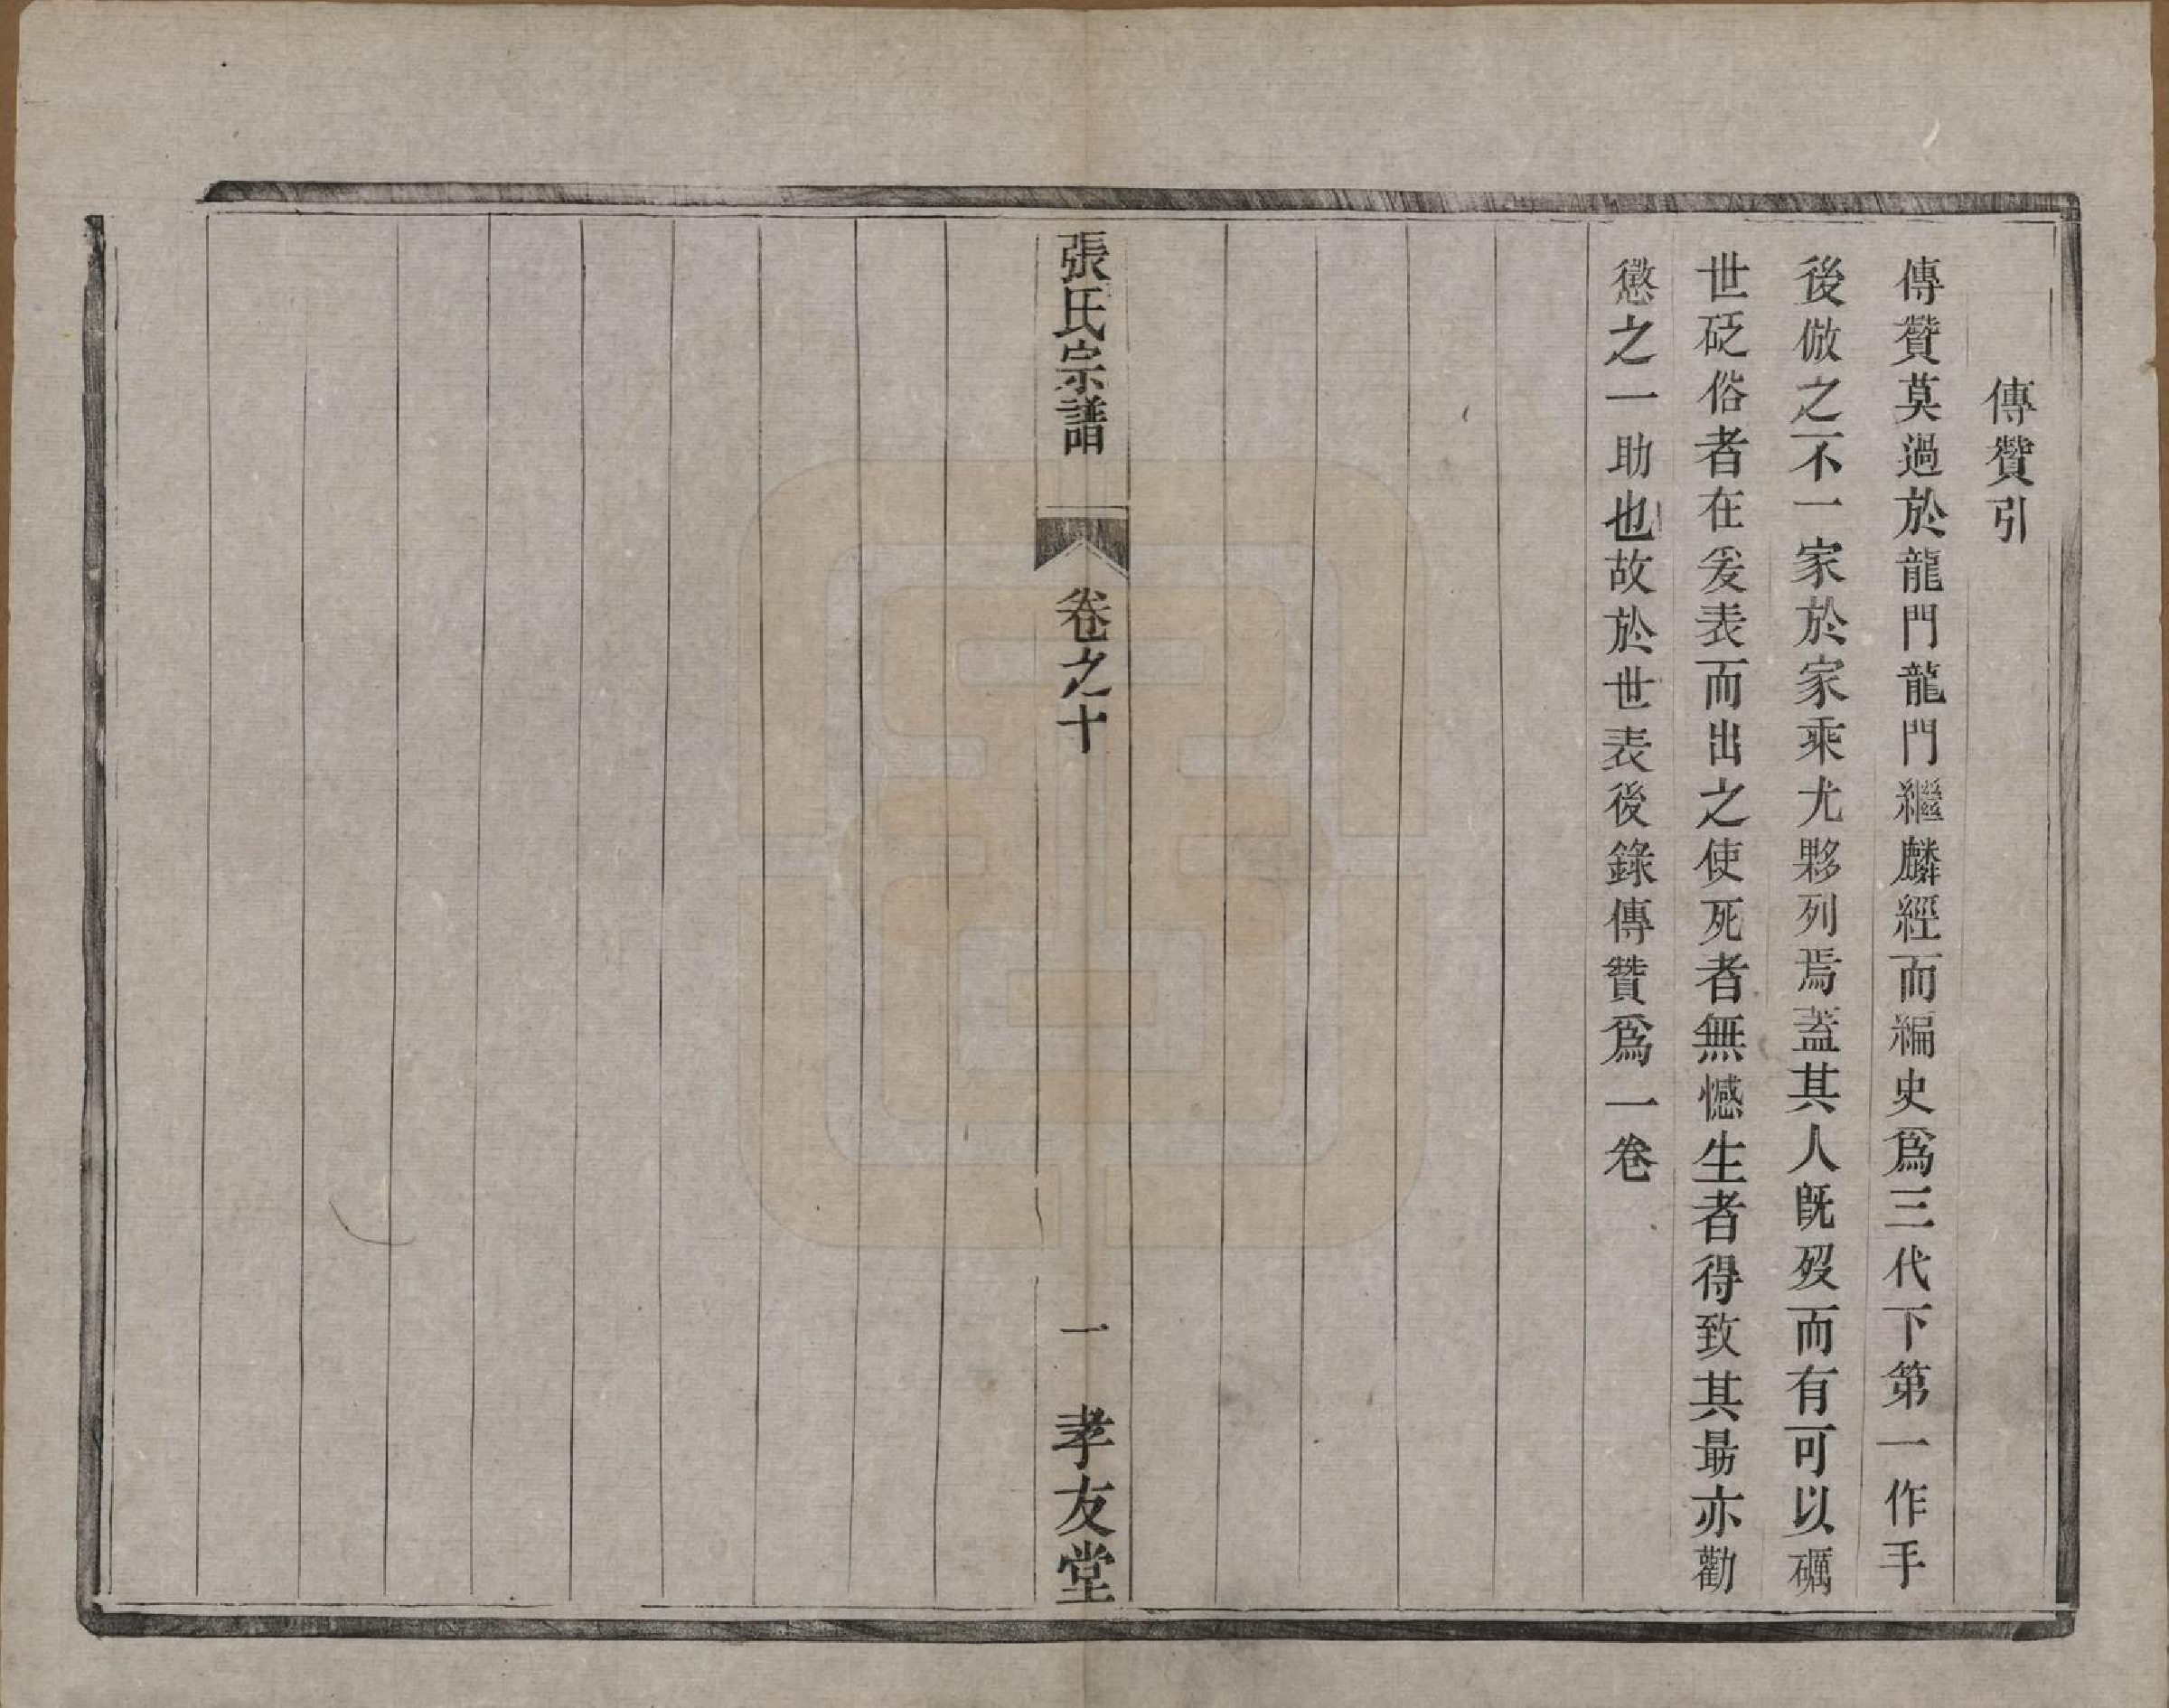 傳贊引
傳贊莫過於龍門龍門繼麟經而編史爲三代下第一作手
後倣之不一家於家乘尤夥列焉葢其人旣歿而有可以礪
世砭俗者在爰表而出之使死者無憾生者得致其勗亦勸
懲之一助也故於世表後錄傳贊爲一卷
張氏宗譜
卷之十
一
孝友堂